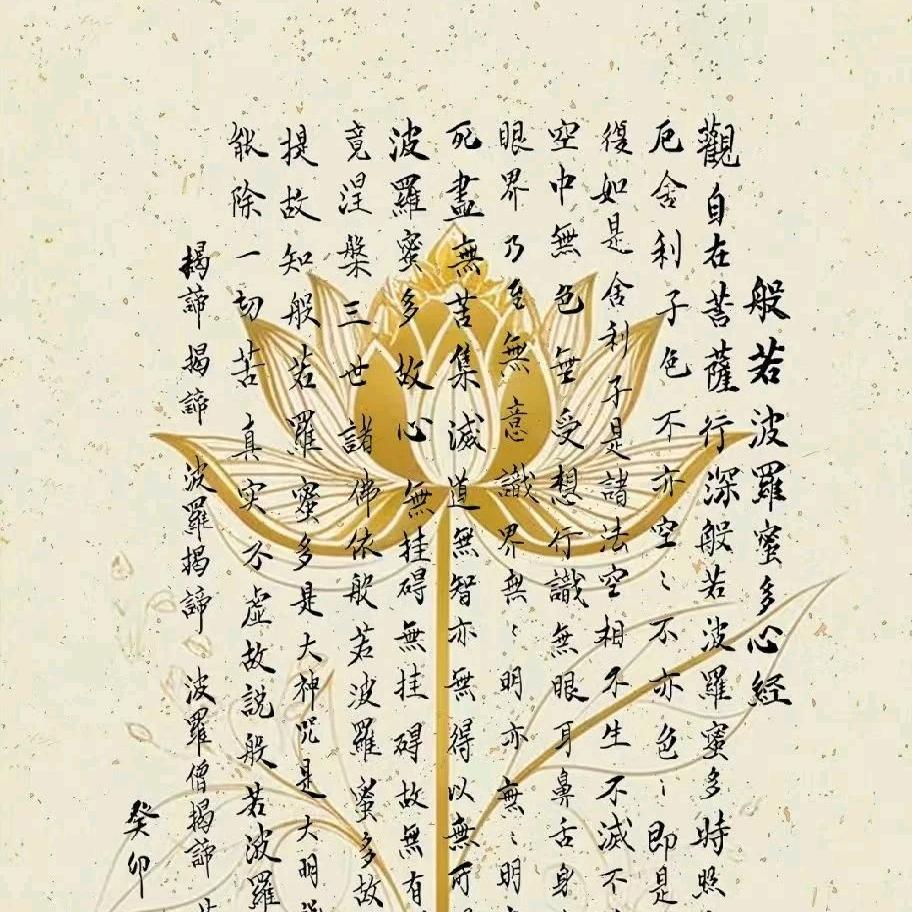 般若波羅蜜多心経
觀自在菩薩行深般若波羅蜜多時照
厄舍利子色不亦空〻不亦色〻即是
復如是舍利子是諸法空相不生不滅不
空中無色無受想行識無眼耳鼻舌身
眼界乃至無意識界無〻明亦無〻明
死盡無苦集滅道無智亦無得以無所
波羅蜜多故心無挂碍無挂碍故無有
竟涅槃三世諸佛依般若波羅蜜多故
提故知般若羅蜜多是大神咒是大明
能除一切苦真实不虛故説般若波羅
揭諦揭諦 波羅揭諦 波羅僧揭諦
癸卯